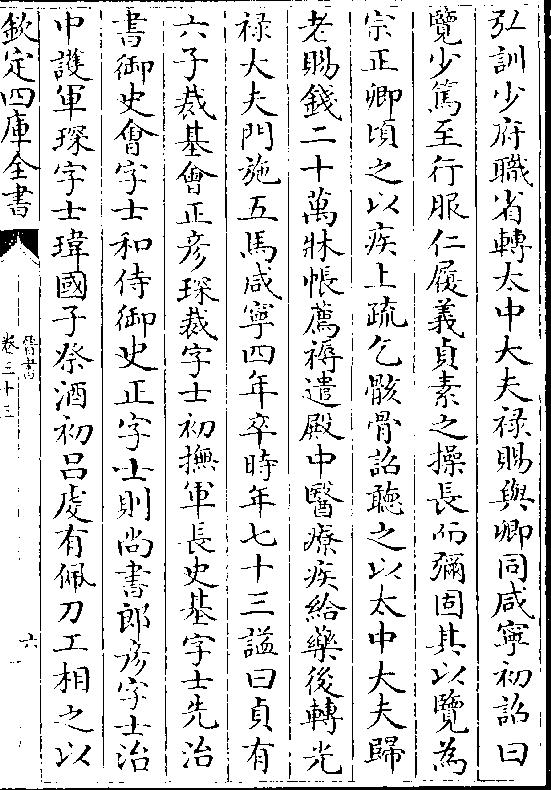 弘訓少府職省轉太中大夫祿賜與卿同咸寧初詔曰
覽少篤至行服仁履義貞素之操長而彌固其以覽為
宗正卿頃之以疾上疏乞骸骨詔聽之以太中大夫歸
老賜錢二十萬牀帳薦褥遣殿中醫療疾給藥後轉光
祿大夫門施五馬咸寧四年卒時年七十三諡曰貞有
六子裁基會正彥琛裁字士初撫軍長史基字士先治
書御史會字士和侍御史正字士則尚書郎彥字士治
中護軍琛字士瑋國子祭酒初呂虔有佩刀工相之以
欽定四庫全書
晉書
卷三十三
六